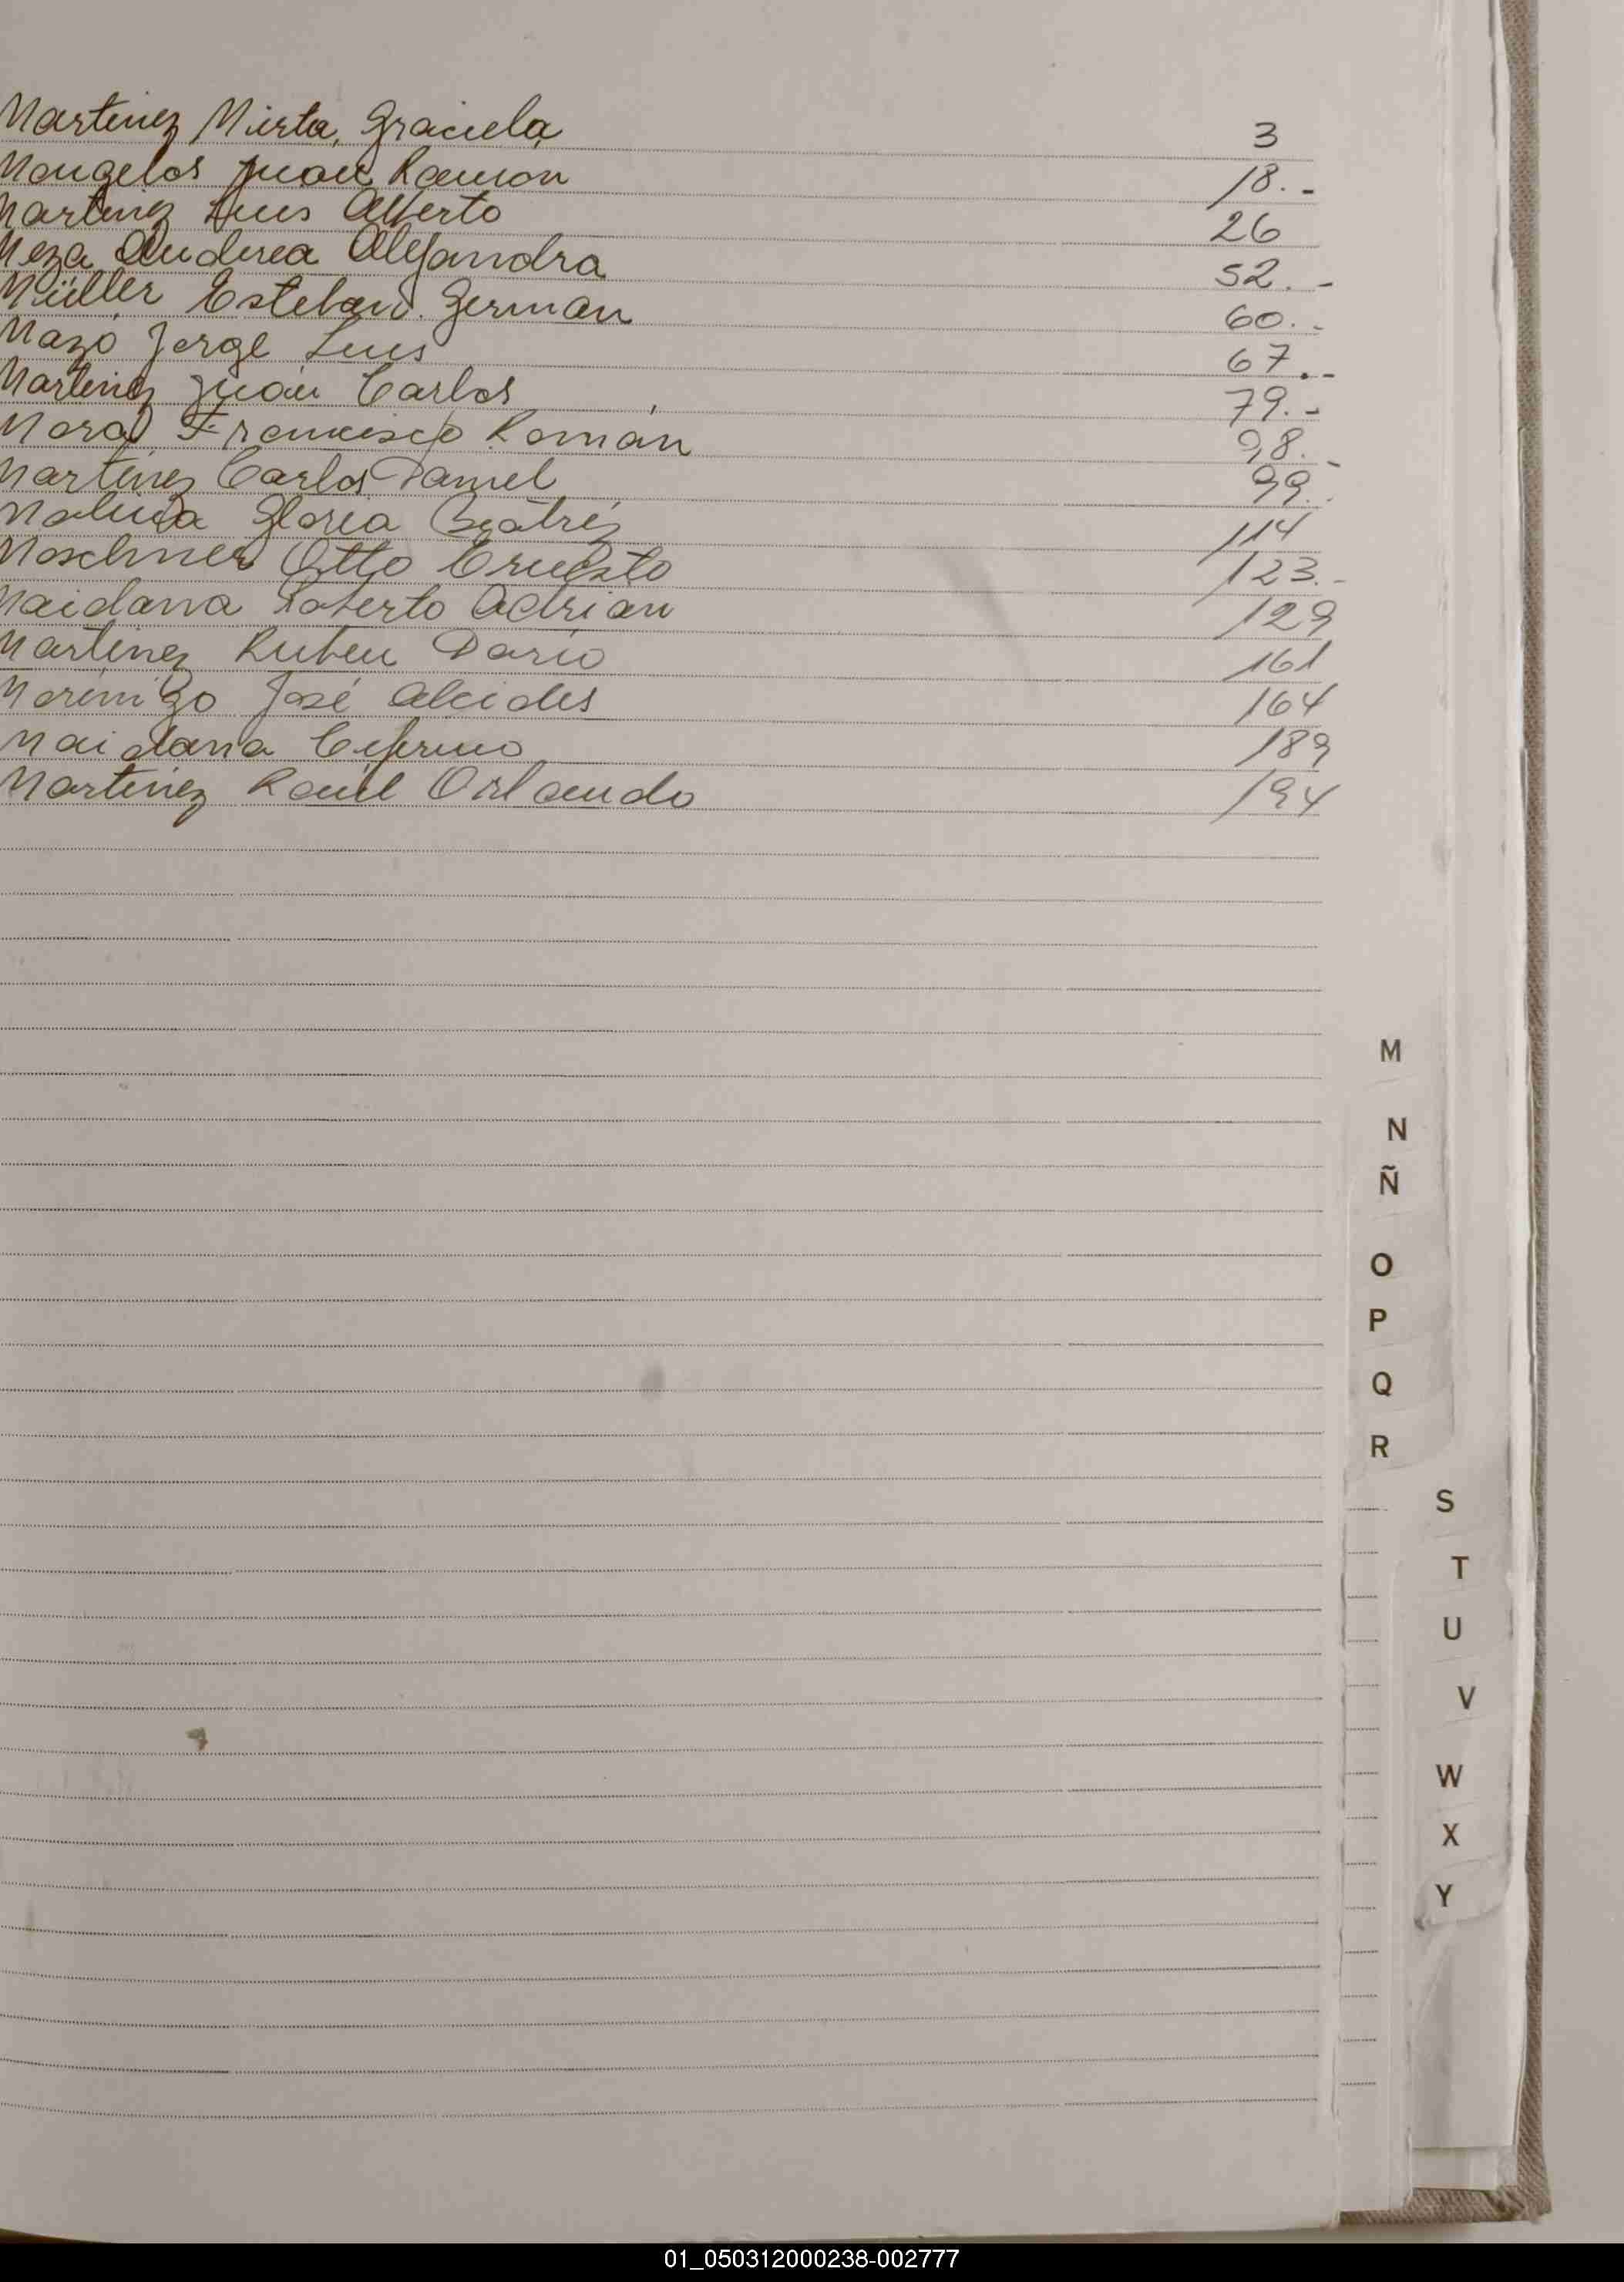 Martinez Mirta, Graciela 3
Mongelos Juan Ramon 18.-
Martinez Luis Alberto 26
Meza Andrea Alejandra 52.-
Müller Esteban German 60.-
Mazó Jorge Luis 67.-
Martinez Juan Carlos 79.-
Mora Francisco Román 98.-
Martinez Carlos Daniel 99.
Molina Gloria Beatriz 114
Moschner Otto Ernesto 123.-
Maidana Roberto Adrian 129
Martinez Ruben Dario 161
Morinigo José Alcides 164
Maidana Ceferino 189
Martinez Raúl Orlando 194
M
N
Ñ
O
P
Q
R
S
T
U
V
W
X
Y
01_050312000238-002777